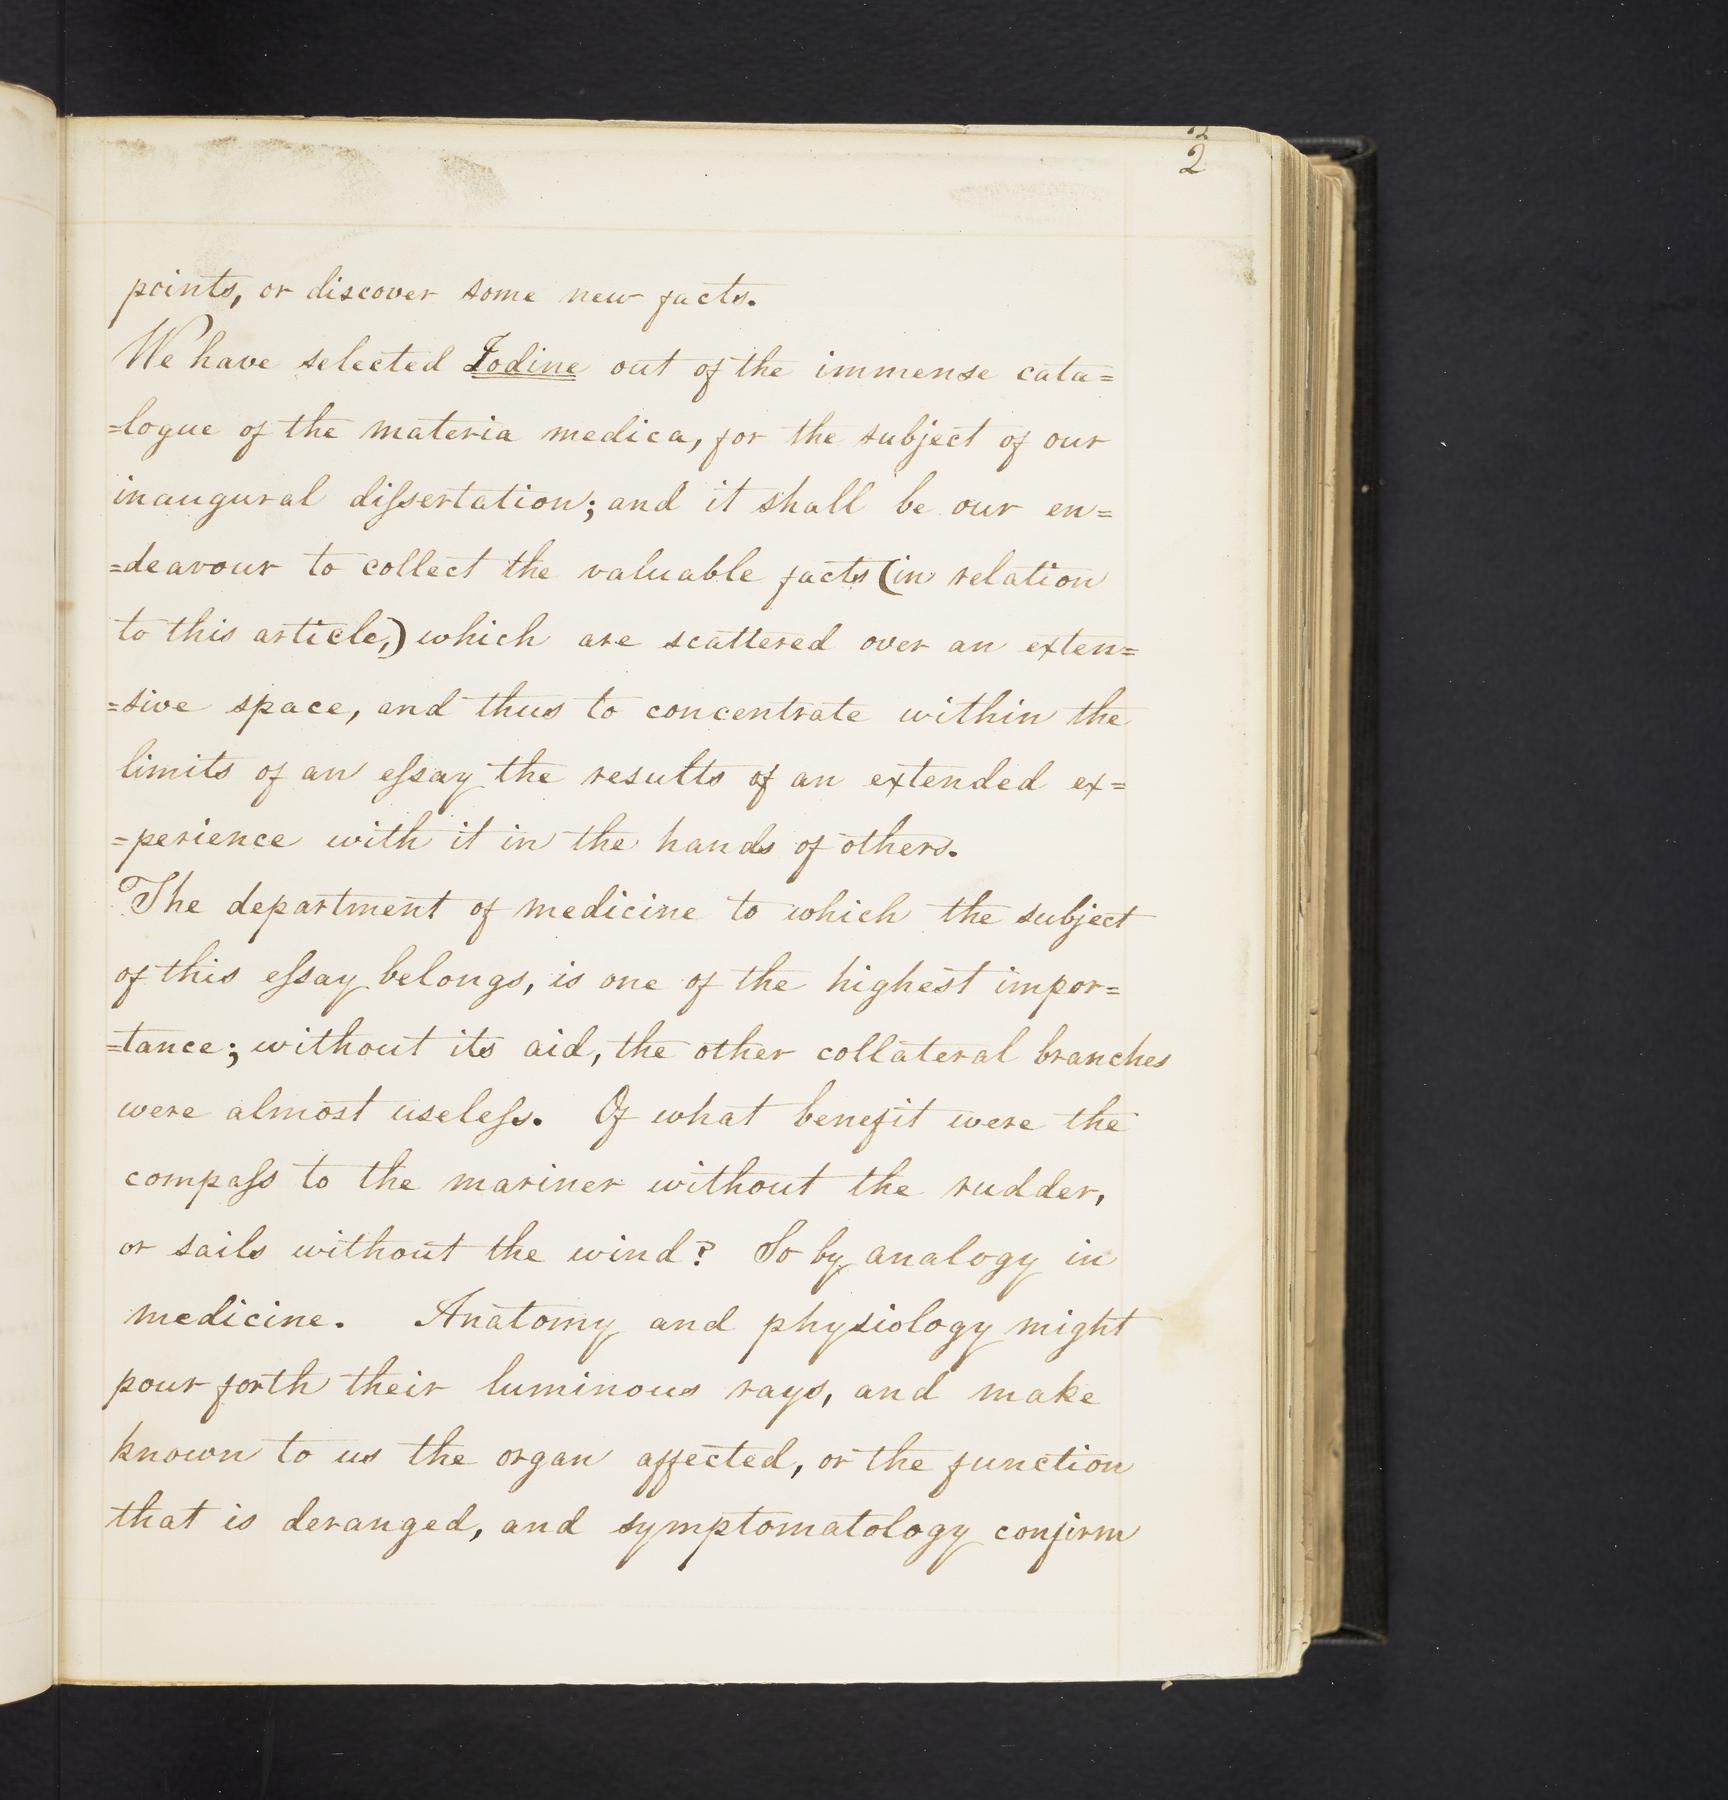 2
points, or discover some new facts.
We have selected Iodine out of the immense cata=
=logue of the materia medica, for the subject of our
inaugural diſsertation; and it shall be our en=
=deavour to collect the valuable facts (in relation
to this article,) which are scattered over an exten=
=sive space, and thus to concentrate within the
limits of an eſsay the results of an extended ex=
=perience with it in the hands of others.
The department of medicine to which the subject
of this eſsay belongs, is one of the highest impor=
=tance; without its aid, the other collateral branches
were almost useleſs. Of what benefit were the
compaſs to the mariner without the rudder,
or sails without the wind? So by analogy in
medicine. Anatomy and physiology might
pour forth their luminous rays, and make
known to us the organ affected, or the function
that is deranged, and symptomatology confirm